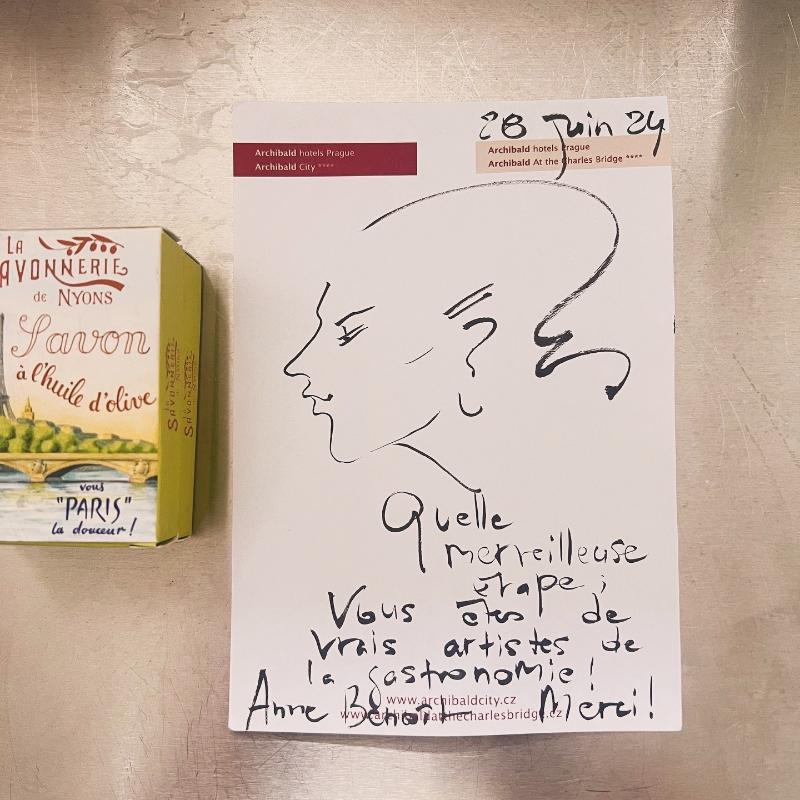 LA
SAVONNERIE
DE NYONS
Savon
à l'huile d'olive
vous
"PARIS"
la douceur !
SAVONNERIE
SAVONNERIE
28 Juin 24
Archibald hotels Prague
Archibald City ****
Archibald hotels Prague
Archibald At the Charles Bridge ****
Quelle
merveilleuse
étape ;
Vous êtes de
vrais artistes de
la gastronomie !
www.archibaldcity.cz
Anne Benoît Merci !
www.archibaldatthecharlesbridge.cz